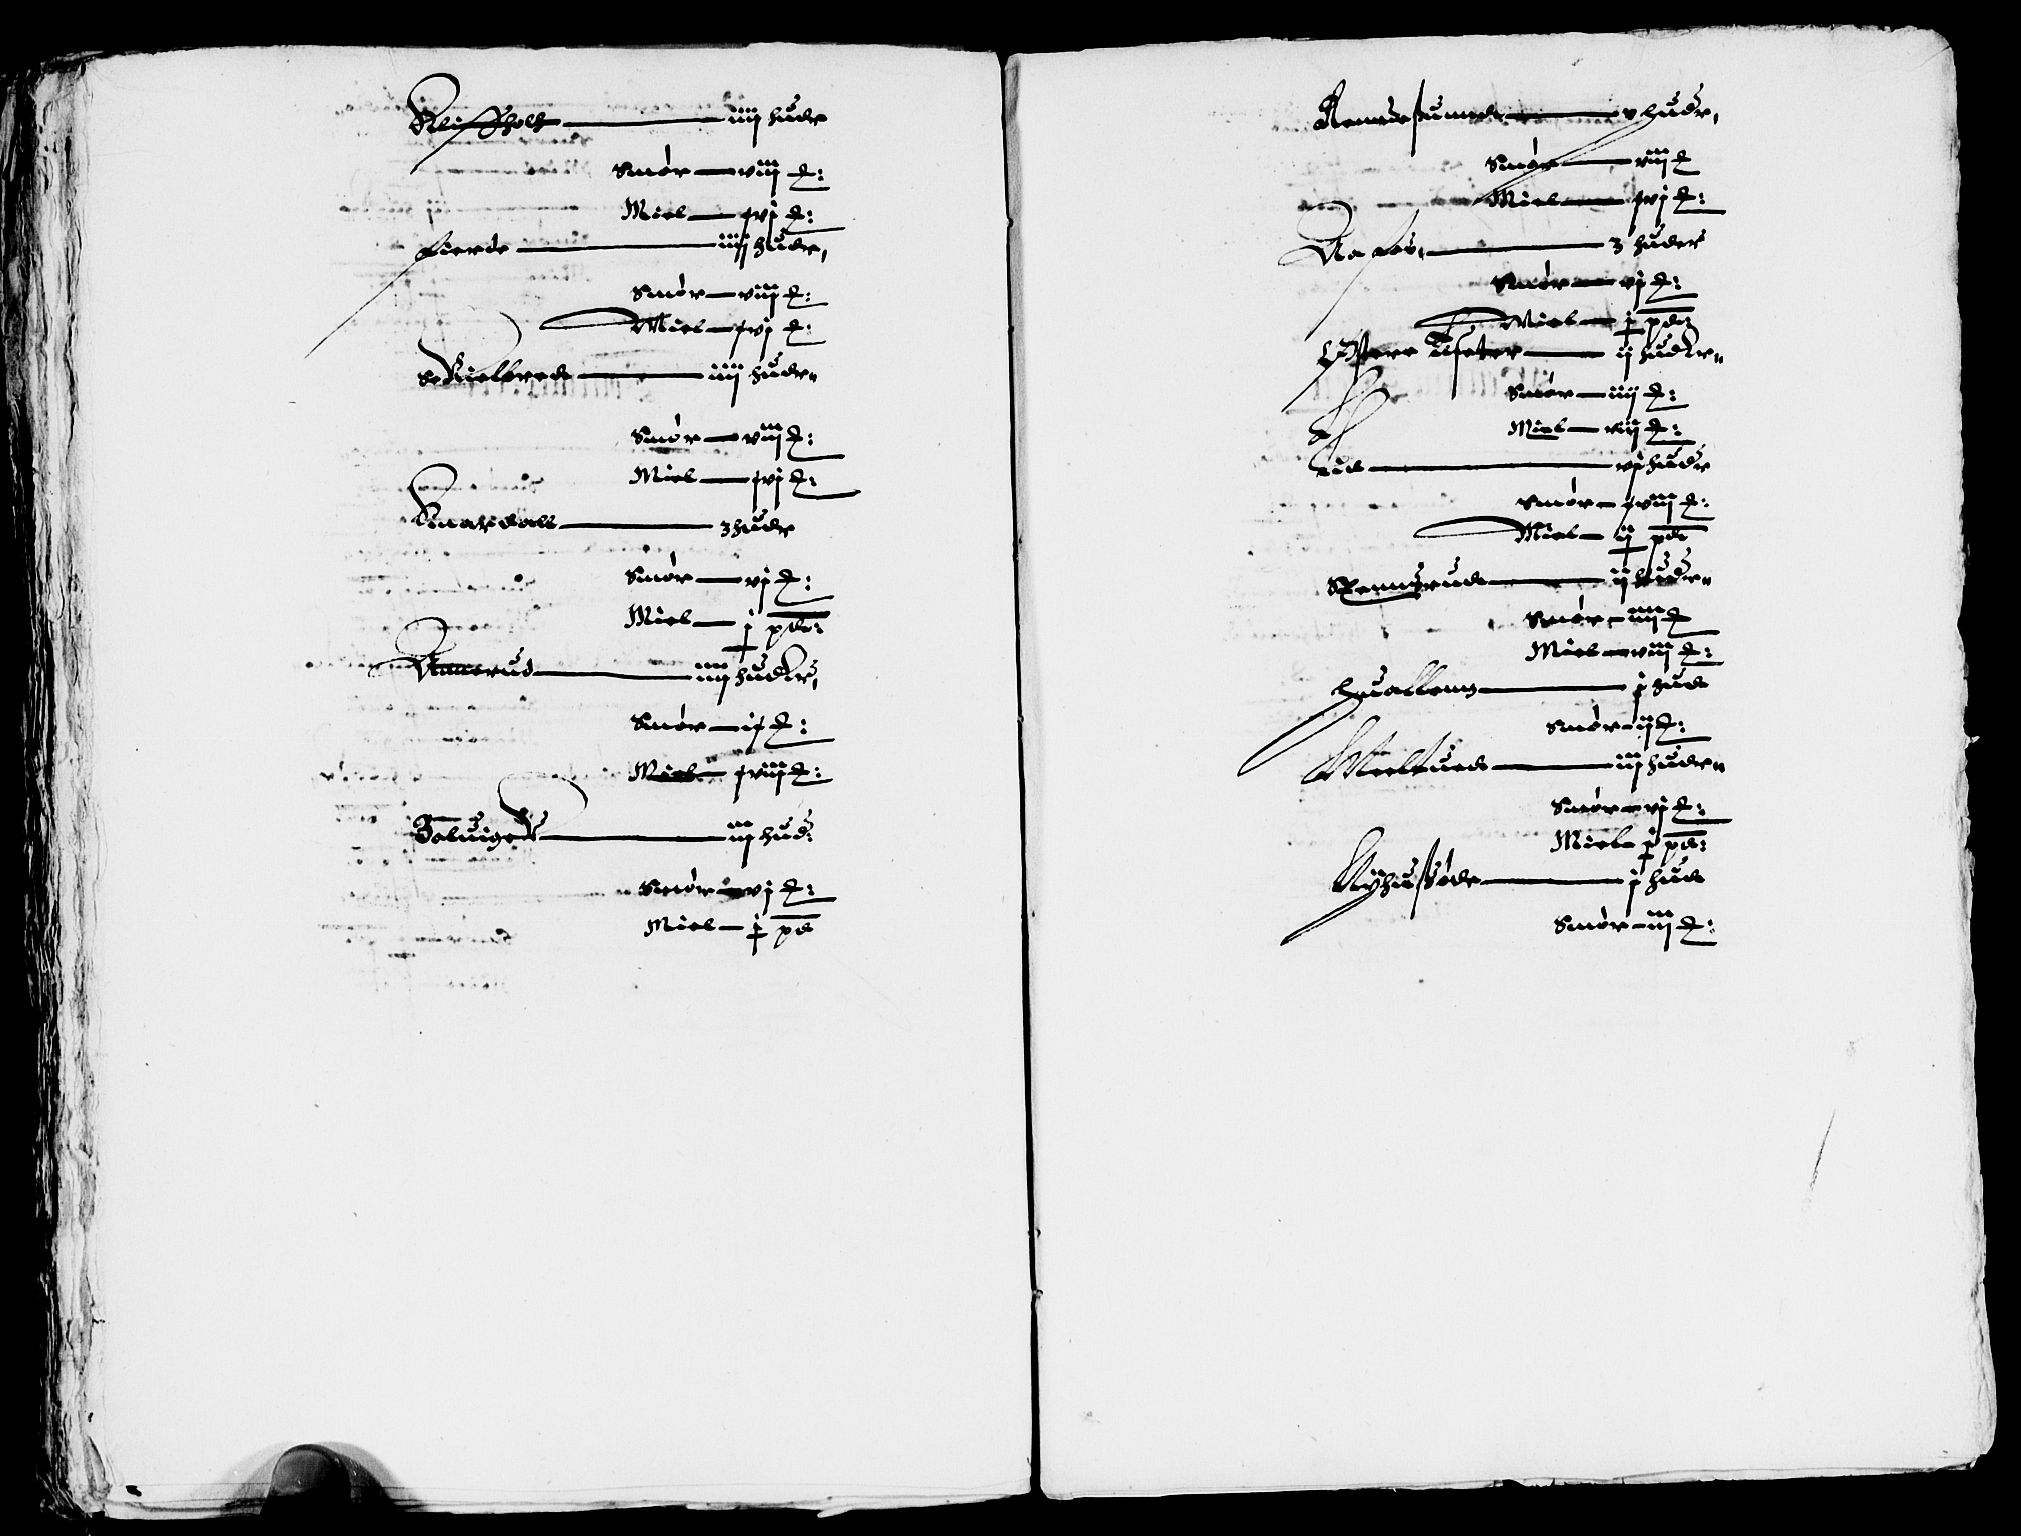 iiij huder
Smør — viij ℔:
Miel — xvj ℔:
Fierde — iiij huder,
Smør — viij ℔:
Miel — xvj ℔:
iiij huder
Smør — viij ℔:
Miel — xvj ℔:
Knardall — 3 huder
Smør — vj ℔:
Miel — j pd:
Rammerud — iiij huder,
Smør — ix ℔:
Miel — xviij ℔:
Soluiger — iij hud:
Smør — vj ℔:
Miel — j pd
v huder,
Smør — viij ℔
Miel — xvj ℔:
3 huder
Smør — vj ℔:
Miel — j pd:
Østere — ij huder
Smør — iiij ℔:
Miel — viij ℔:
Lid — vj huder
Smør — xviij ℔:
Miel — ij pd
ij huder
Smør — iiij ℔
Miel — viij ℔:
j hud
Smør — ij ℔:
iij huder
Smør — vj ℔:
Miel — j pd:
Nÿhussøde — j hud
Smør — iij ℔: